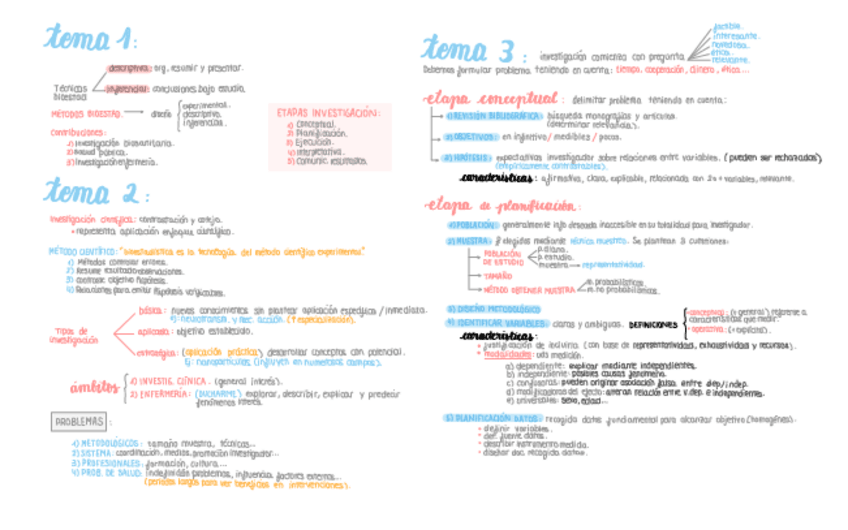 tema 1:
descriptiva: org, resumir y presentar.
Técnicas
bioestad
inferencial: conclusiones bajo estudio.
MÉTODOS BIOESTAD. → diseño
experimental.
descriptiva.
inferencial.
contribuciones:
1) Investigación biosanitaria.
2) Salud pública.
3) Investigación enfermería.
ETAPAS INVESTIGACIÓN:
1) Conceptual.
2) Planificación.
3) Ejecución.
4) Interpretativa.
5) Comunic resultados.
tema 2:
investigación científica: contrastación y cotejo.
• representa aplicación enfoque científico.
MÉTODO CIENTÍFICO: "bioestadística es la tecnología del método científico experimental"
1) Métodos controlar errores.
2) Resume resultados observaciones.
3) contraste objetivo hipótesis.
4) Relaciones para emitir hipótesis verificables.
Tipos de
investigación
básica: nuevos conocimientos sin plantear aplicación específica / inmediata.
ej: neurotransm. y mec. acción (↑ especialización).
aplicada: objetivo establecido.
estratégica: (aplicación práctica) desarrollar conceptos con potencial.
ej: nanopartículas (influyen en numerosos campos).
ámbitos
1) INVESTIG. CLÍNICA. (general interés).
2) ENFERMERÍA: (DUCHARME) explorar, describir, explicar y predecir
fenómenos interés.
PROBLEMAS:
1) METODOLÓGICOS: tamaño muestra, técnicas...
2) SISTEMA: coordinación, medios, promoción investigador...
3) PROFESIONALES: formación, cultura...
4) PROB. DE SALUD: indefinición problemas, influencia factores externos...
(periodos largos para ver beneficios en intervenciones).
tema 3:
investigación comienza con pregunta
factible.
interesante.
novedosa.
ética.
relevante.
Debemos formular problema teniendo en cuenta: tiempo, cooperación, dinero, ética...
etapa conceptual: delimitar problema teniendo en cuenta:
1) REVISIÓN BIBLIOGRÁFICA: búsqueda monografías y artículos.
(determinar relevancia).
2) OBJETIVOS: en infinitivo / medibles / pocos.
3) HIPÓTESIS: expectativas investigador sobre relaciones entre variables. (pueden ser rechazadas)
(empíricamente contrastables).
características: afirmativa, clara, explicable, relacionada con 2 o + variables, relevante.
etapa de planificación:
1) POBLACIÓN: generalmente info deseada inaccesible en su totalidad para investigador.
2) MUESTRA: elegidas mediante técnica muestreo. Se plantean 3 cuestiones:
POBLACIÓN
DE ESTUDIO
p. diana.
p. estudio.
muestra → representatividad.
TAMAÑO
MÉTODO OBTENER MUESTRA
m. probabilísticos.
m. no probabilísticos.
3) DISEÑO METODOLÓGICO
4) IDENTIFICAR VARIABLES: claras y ambiguas. DEFINICIONES
• conceptual: (+ general) referente a
características que medir.
• operativa: (+ explícita).
características:
• justificación de incluirla (con base de representatividad, exhaustividad y recursos).
• modalidades: uds medición.
a) dependiente: explicar mediante independientes.
b) independiente: posibles causas fenómeno.
c) confusoras: pueden originar asociación falsa entre dep/indep.
d) modificadoras del efecto: alteran relación entre v. dep e independientes.
e) universales: sexo, edad...
5) PLANIFICACIÓN DATOS: recogida datos fundamental para alcanzar objetivo (homogénea):
• definir variables.
• dec. fuente datos.
• describir instrumento medida.
• diseñar doc recogida datos.